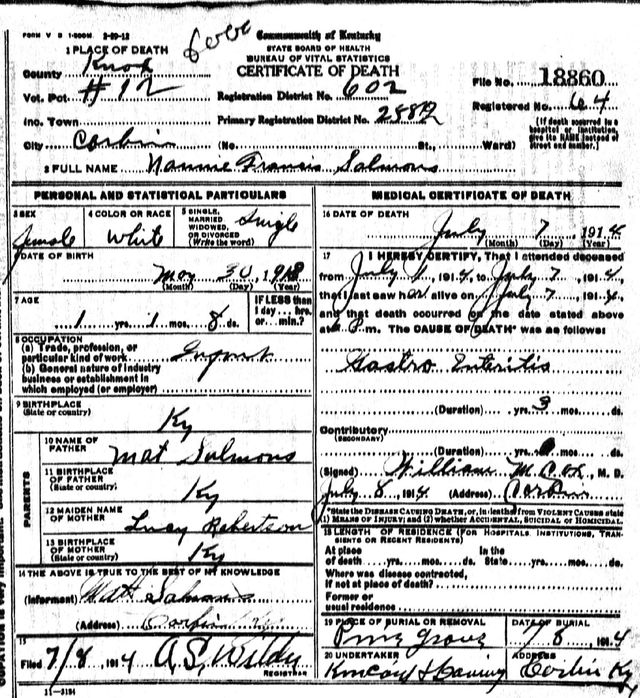 FORM V S 1-500M. 2-20-12
Commonwealth of Kentucky
STATE BOARD OF HEALTH
BUREAU OF VITAL STATISTICS
CERTIFICATE OF DEATH
1 PLACE OF DEATH
County Knox
Vot. Pct #12
Inc. Town
City Corbin
Registration District No. 602
Primary Registration District No.
(No. St., Ward)
File No. 18860
Registered No. 64
[If death occurred in a
hospital or institution,
give its NAME instead of
street and number.]
2 FULL NAME Nannie Francis Salmons
PERSONAL AND STATISTICAL PARTICULARS
3 SEX
Female
4 COLOR OR RACE
White
5 SINGLE,
MARRIED
WIDOWED,
OR DIVORCED
(Write the word)
Single
6 DATE OF BIRTH
May 30
(Month) (Day) (Year)
7 AGE
1 yrs. 1 mos. 8 ds.
IF LESS than
1 day... hrs.
or min.?
8 OCCUPATION
(a) Trade, profession, or
particular kind of work Infant
(b) General nature of industry
business or establishment in
which employed (or employer)
9 BIRTHPLACE
(State or country) Ky
PARENTS
10 NAME OF
FATHER Mat Salmons
11 BIRTHPLACE
OF FATHER
(State or country) Ky
12 MAIDEN NAME
OF MOTHER Lucy Robertson
13 BIRTHPLACE
OF MOTHER
(State or country) Ky
14 THE ABOVE IS TRUE TO THE BEST OF MY KNOWLEDGE
(Informant) Matt Salmons
(Address) Corbin Ky
15
Filed 7/8 1914 A.S. Wildy
REGISTRAR
11-3184
MEDICAL CERTIFICATE OF DEATH
16 DATE OF DEATH
July 7, 1914
(Month) (Day) (Year)
17 I HEREBY CERTIFY, That I attended deceased
from July 1, 1914, to July 7, 1914,
that I last saw her alive on July 7, 1914,
and that death occurred on the date stated above
at P.m. The CAUSE OF DEATH* was as follows:
Gastro Enteritis
(Duration) yrs. 3 mos. ds.
Contributory
(SECONDARY)
(Duration) yrs. mos. ds.
(Signed) William M. Cox, M. D.
July 8, 1914 (Address) Corbin
*State the DISEASE CAUSING DEATH, or, in deaths from VIOLENT CAUSES state
(1) MEANS OF INJURY; and (2) whether ACCIDENTAL, SUICIDAL OR HOMICIDAL.
18 LENGTH OF RESIDENCE (FOR HOSPITALS, INSTITUTIONS, TRANSIENTS
OR RECENT RESIDENTS)
At place
of death yrs. mos. ds.
In the
State yrs. mos. ds.
Where was disease contracted,
if not at place of death?
Former or
usual residence
19 PLACE OF BURIAL OR REMOVAL
Piney Grove
DATE OF BURIAL
7/8, 1914
20 UNDERTAKER
ADDRESS
Corbin Ky